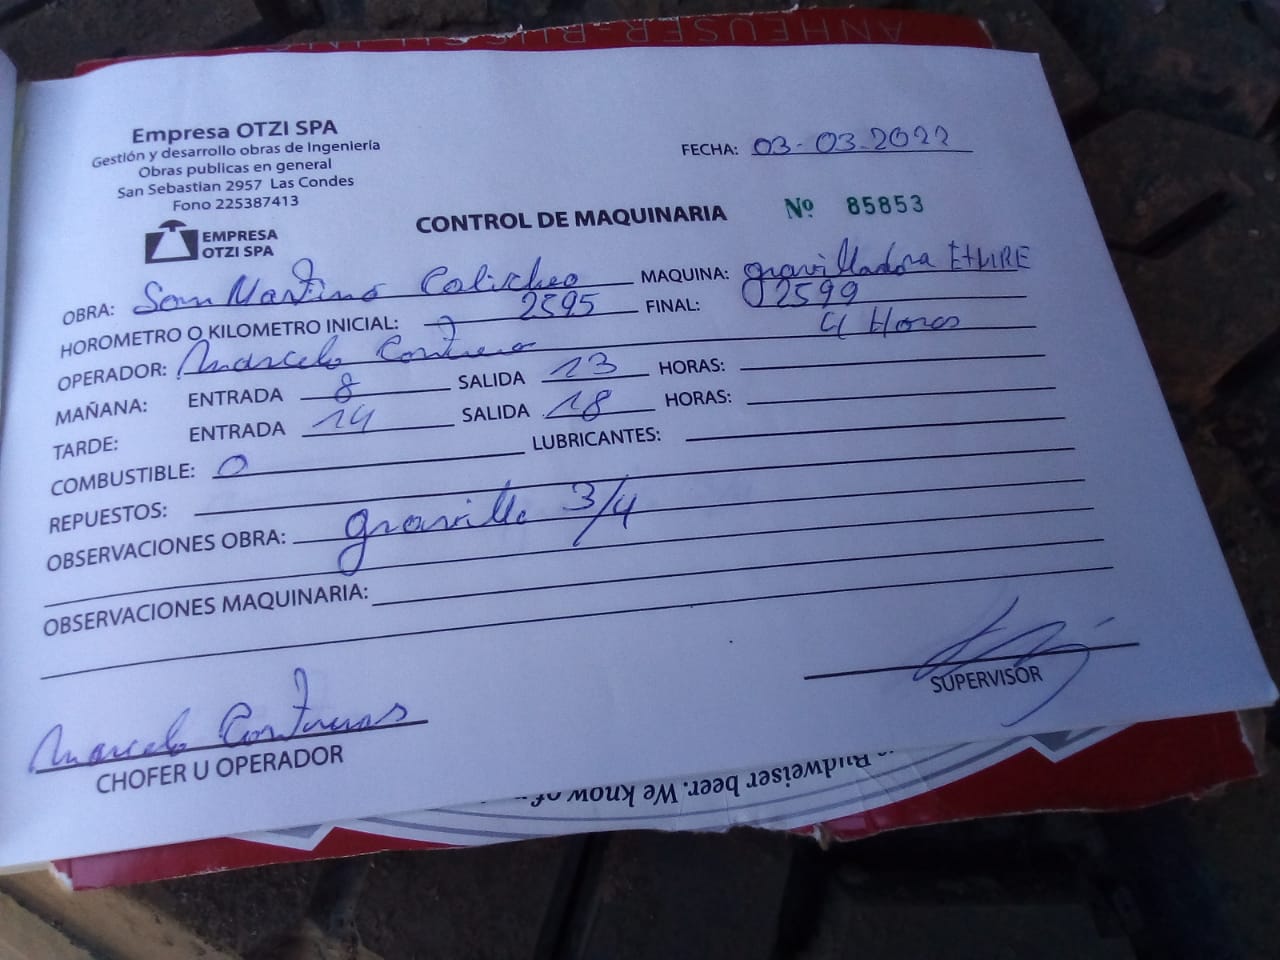 ANHEUSER-BUSCH, INC.
Empresa OTZI SPA
Gestión y desarrollo obras de Ingeniería
Obras publicas en general
San Sebastian 2957 Las Condes
Fono 225387413
EMPRESA
OTZI SPA
FECHA: 03-03-2022
CONTROL DE MAQUINARIA Nº 85853
OBRA: San Martino Calicheo MAQUINA: gravilladora
HOROMETRO O KILOMETRO INICIAL: 2595 FINAL: 2599
OPERADOR: Marcelo Contreras 4 Horas
MAÑANA: ENTRADA 8 SALIDA 13 HORAS:
TARDE: ENTRADA 14 SALIDA 18 HORAS:
COMBUSTIBLE: 0 LUBRICANTES:
REPUESTOS:
OBSERVACIONES OBRA: gravilla 3/4
OBSERVACIONES MAQUINARIA:
Marcelo Contreras
CHOFER U OPERADOR
SUPERVISOR
Budweiser beer. We know of